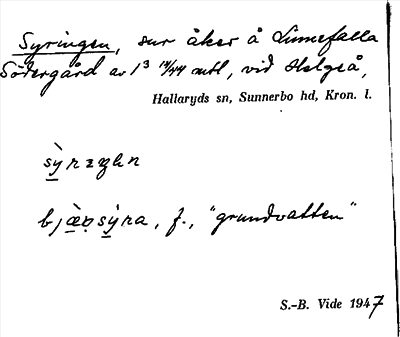 Syringen, sur åker å Linnefalla
Södergård av 1³ 13/44 mtl, vid Helgeå,
Hallaryds sn, Sunnerbo hd, Kron. l.
bjæ̀ṛsỳra, f., "grundvatten"
S.-B. Vide 1947